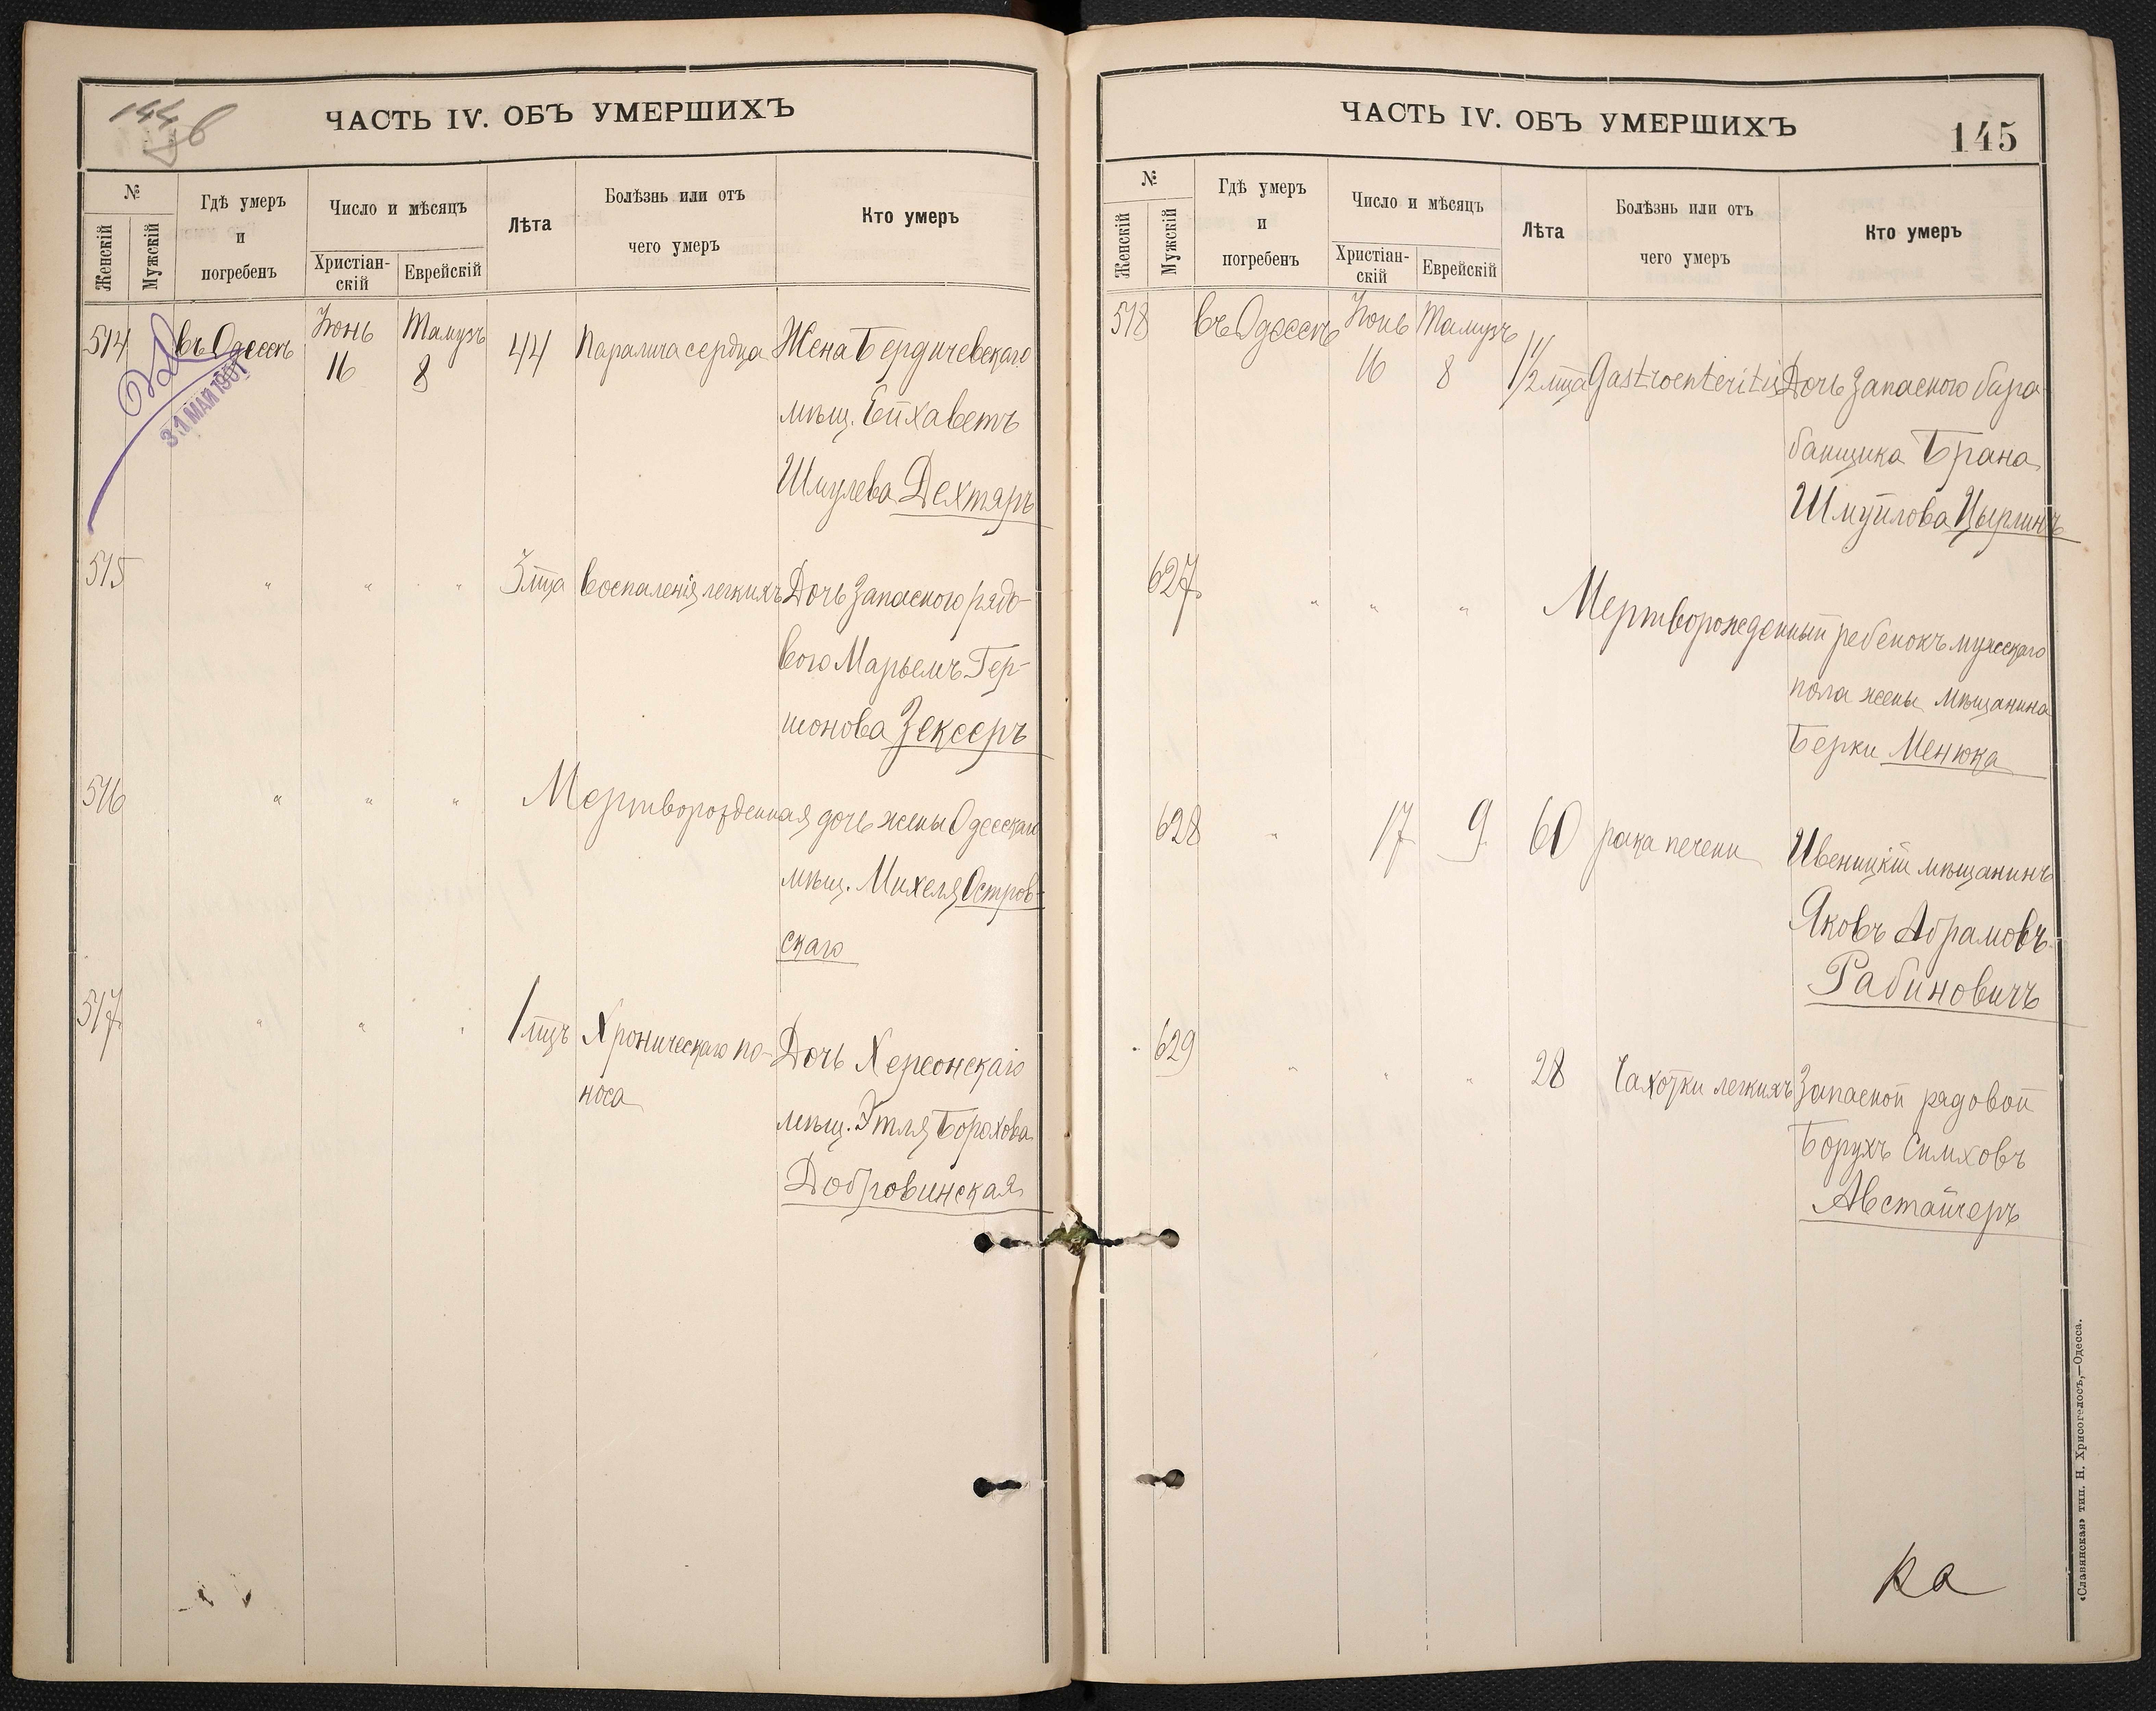 144 в
ЧАСТЬ IV. ОБЪ УМЕРШИХЪ
№
Женскій
Мужскій
Гдѣ умеръ
и
погребенъ
Число и мѣсяцъ
Христіан-
скій
Еврейскій
Лѣта
Болѣзнь или отъ
чего умеръ
Кто умеръ
514 въ Одессѣ Іюнь Тамузъ 44 Паралича сердца Жена Бердичевскаго
16 8
мѣщ. Ейхаветъ
Шмулева Дехтяръ
31 МАЙ 1901
515 " " " 3 мца Воспаленія легкихъ Дочь запасного рядо-
вого Марьемъ Гер-
шонова Зексеръ
516 " " " Мертворожденная дочь жены Одесскаго
мѣщ. Михеля Остров-
скаго
517 " " " 1 мцъ Хроническаго по- Дочь Херсонскаго
носа
мѣщ. Этля Борохова
Добровинская
ЧАСТЬ IV. ОБЪ УМЕРШИХЪ
145
№
Женскій
Мужскій
Гдѣ умеръ
и
погребенъ
Число и мѣсяцъ
Христіан-
скій
Еврейскій
Лѣта
Болѣзнь или отъ
чего умеръ
Кто умеръ
518 въ Одессѣ Іюнь Тамузъ
16 8 1 1/2 мца Gastroenteritis Дочь запасного бара-
банщика Брана
Шмуйлова Цырлинъ
627 " " " Мертворожденный ребенокъ мужескаго
пола жены мѣщанина
Берки Менюка
628 " 17 9 60 рака печени Ивеницкій мѣщанинъ
Яковъ Абрамовъ
Рабиновичъ
629 " " " 28 Чахотки легкихъ Запасной рядовой
Борухъ Симховъ
Австайчеръ
ка
«Славянская» тип. Н. Хрисогелосъ,—Одесса.